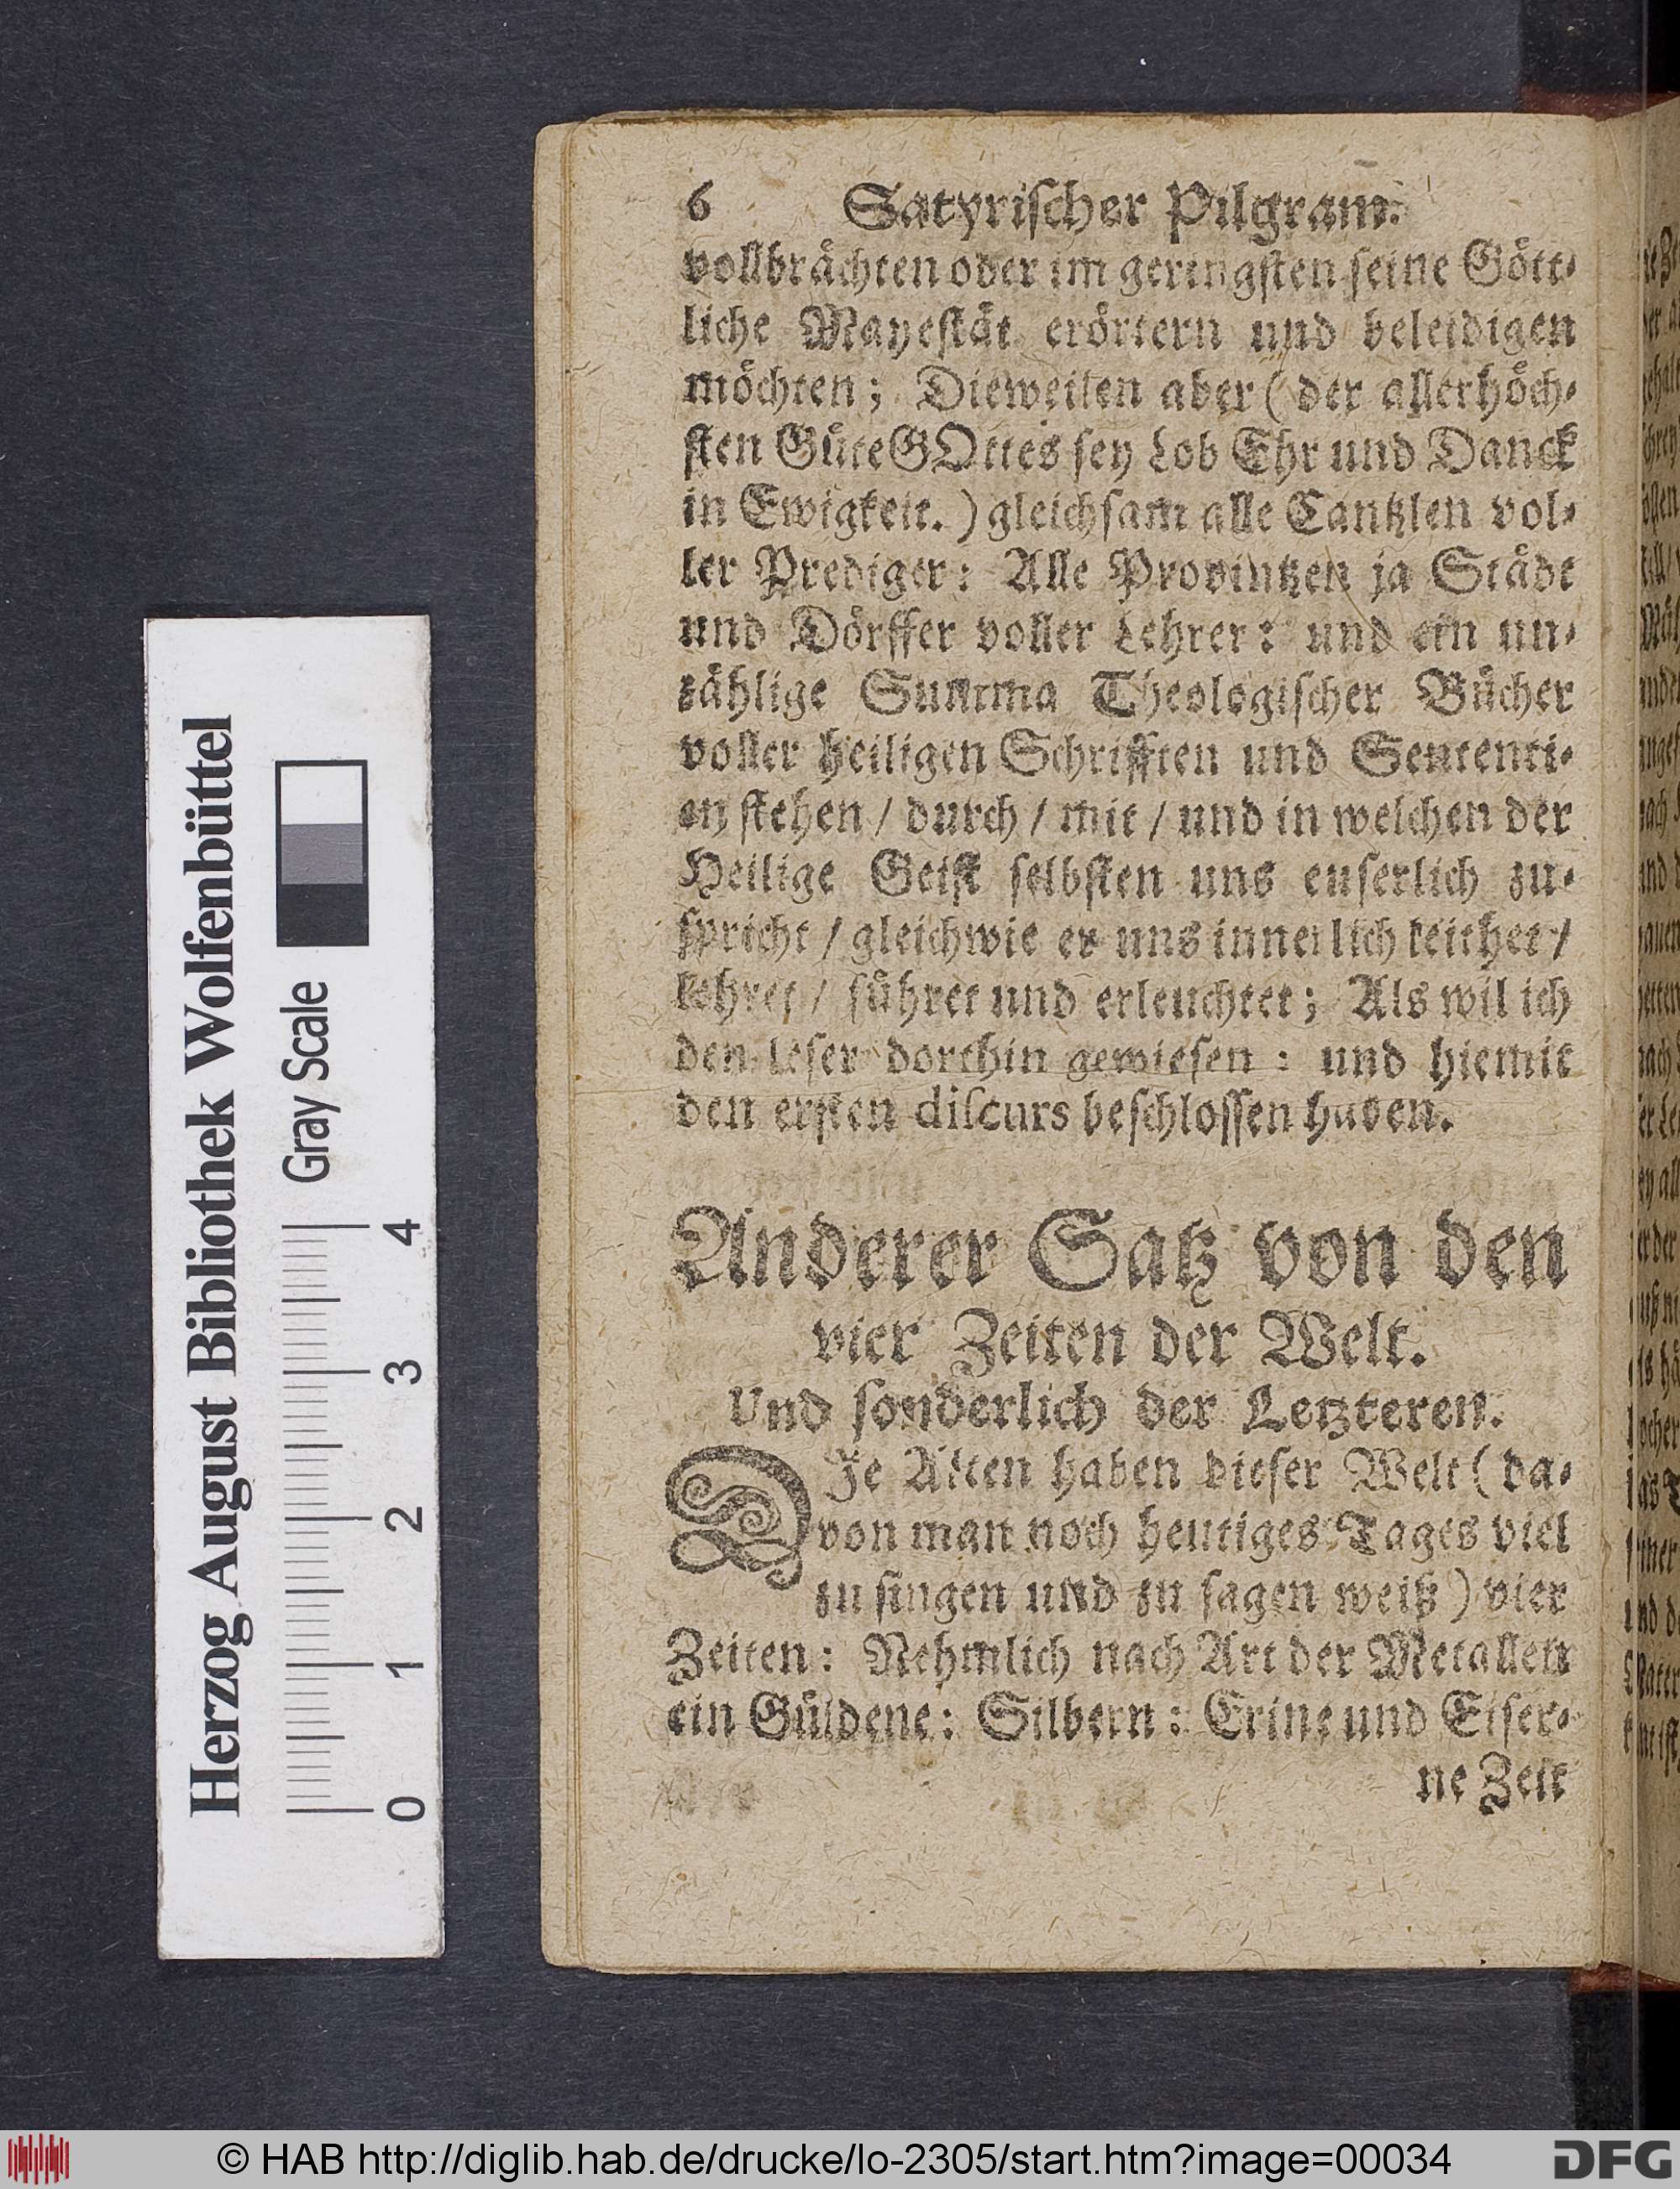 6 Satyrischer Pilgram.
vollbrächten oder im geringsten seine Gött-
liche Mayestät erörtern und beleidigen
möchten; Dieweilen aber (der allerhöch-
sten Güte GOttes sey Lob Ehr und Danck
in Ewigkeit.) gleichsam alle Cantzlen vol-
ler Prediger: Alle Provintzen ja Städt
und Dörffer voller Lehrer: und ein un-
zählige Summa Theologischer Bücher
voller heiligen Schrifften und Sententi-
en stehen / durch / mit / und in welchen der
Heilige Geist selbsten uns euserlich zu-
spricht / gleichwie er uns innerlich leithet /
lehret / führet und erleuchtet; Als wil ich
den leser dorthin gewiesen: und hiemit
den ersten discurs beschlossen haben.
Anderer Satz von den
vier Zeiten der Welt.
Und sonderlich der Letzteren.
DIe Alten haben dieser Welt (da-
von man noch heutiges Tages viel
zu singen und zu sagen weiß) vier
Zeiten: Nehmlich nach Art der Metallen
ein Güldene: Silbern: Erine und Eiser-
ne Zeit
Herzog August Bibliothek Wolfenbüttel
Gray Scale
0 1 2 3 4
© HAB http://diglib.hab.de/drucke/lo-2305/start.htm?image=00034
DFG